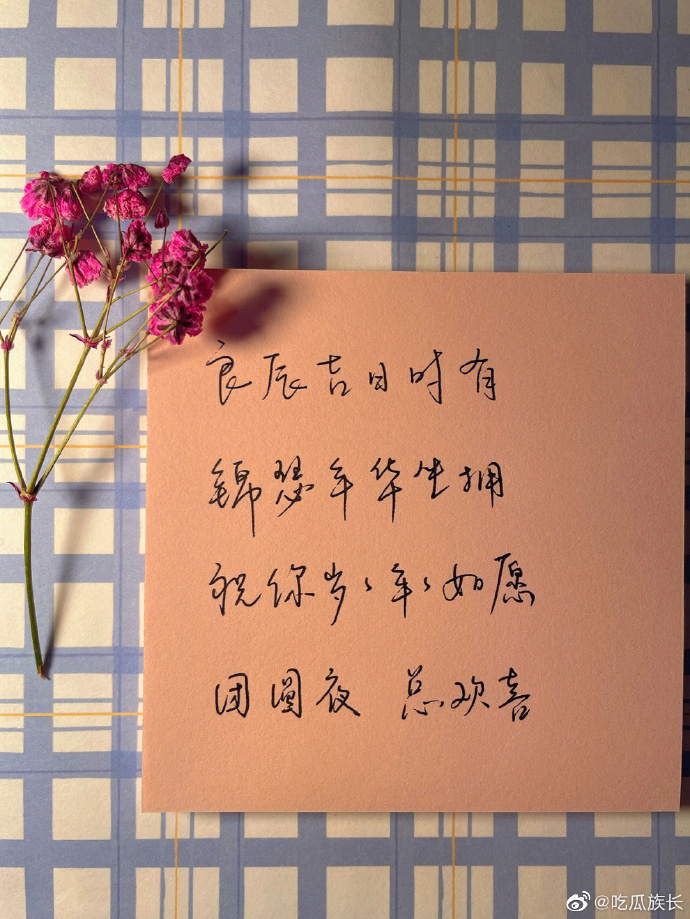 良辰吉日时有
锦瑟年华生拥
祝你岁々年々如愿
团圆夜 总欢喜
@吃瓜族长